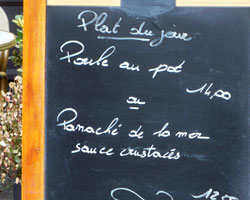 Plat du jour
Poule au pot
14,00
ou
Panaché de la mer
sauce crustacés